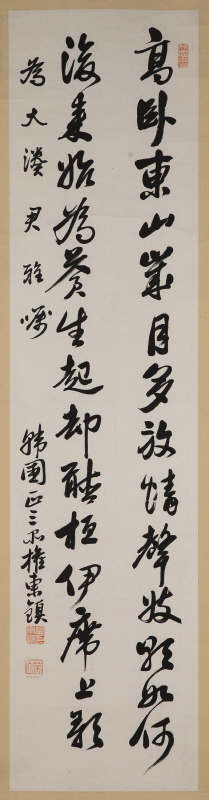 高臥東山歲月多放情聲妓如何
後來始為蒼生起却聽桓伊席上歌
為大君雅囑
韓國正三品權東鎮